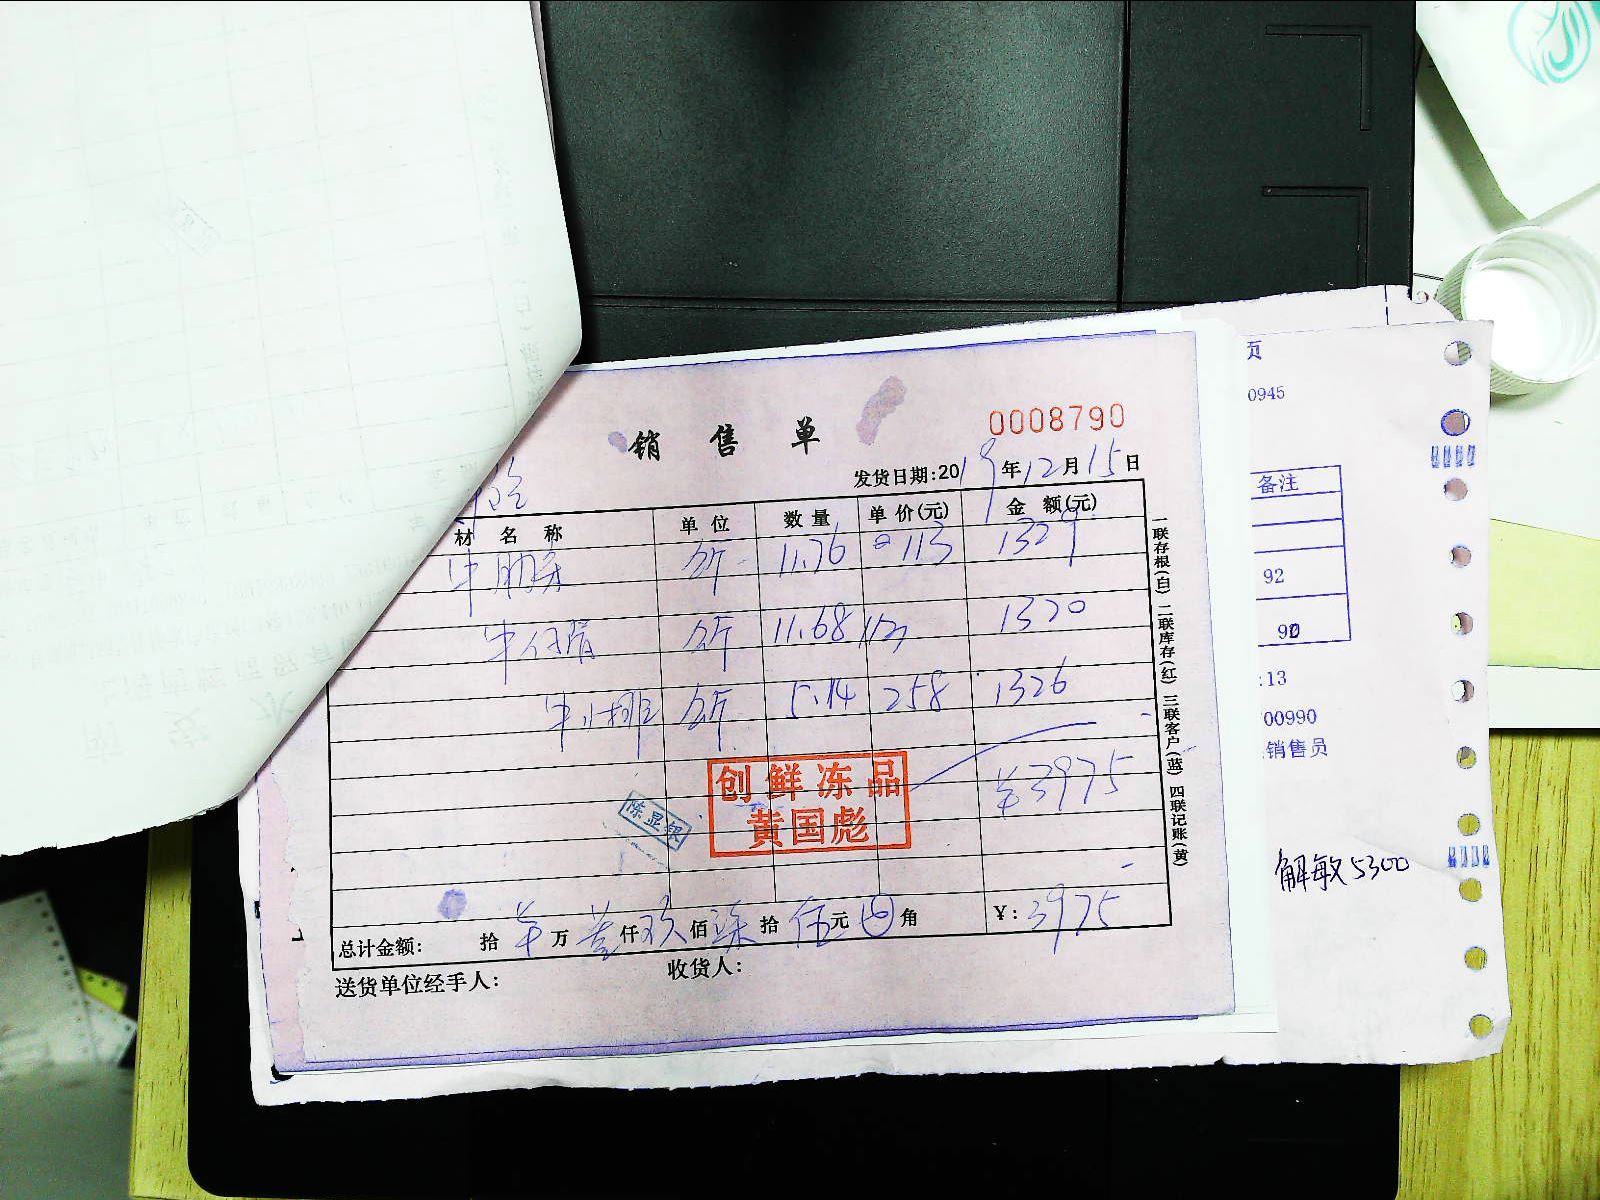 销售单
0008790
发货日期:2019年12月15日
材名称 单位 数量 单价(元) 金额(元)
牛肋条 公斤 11.76 @113 1329
牛仔骨 公斤 11.68 113 1320
牛小排 公斤 5.14 258 1326
¥3975
创鲜冻品
黄国彪
陈显银
总计金额: 拾 万 仟 玖佰 柒拾 伍元 角 ¥:3975
送货单位经手人: 收货人:
一联存根(白) 二联库存(红) 三联客户(蓝) 四联记账(黄)
页
0945
备注
92
90
:13
00990
销售员
解敏5300